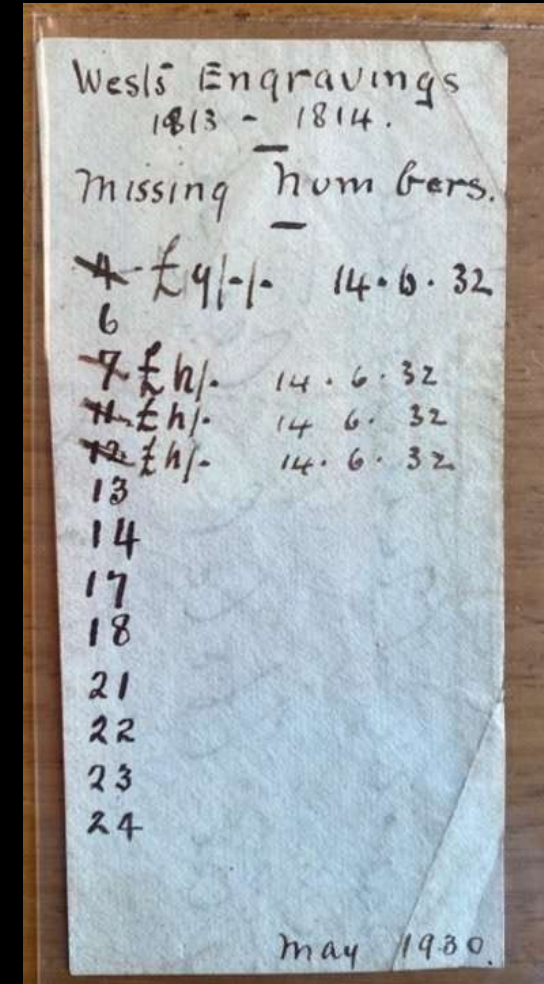 West's Engravings
1813 - 1814.
Missing Numbers.
4 £4/-/- 14.6.32
6
7 £4/- 14.6.32
11 £4/- 14 6. 32
12 £4/- 14.6.32
13
14
17
18
21
22
23
24
May 1930.